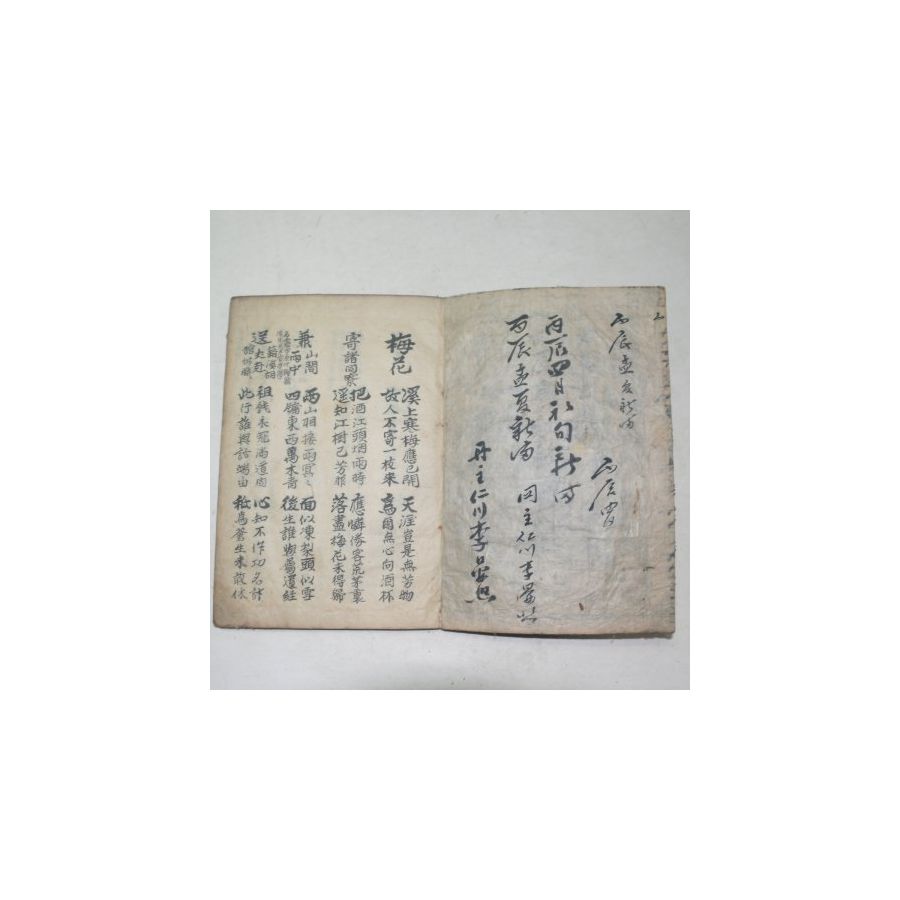 丙辰孟夏新
丙辰
丙辰四月初旬新
丙辰孟夏新 冊主仁川李
冊主仁川李
梅花
溪上寒梅應已開 天涯豈是無芳物
故人不寄一枝来 爲爾無心向酒杯
寄諸同寮
把酒江頭烟雨時 應憐倦客荒茅裏
遥知江樹已芳菲 落盡梅花未得歸
山間
雨中
兩山相接雨冥〻 面似凍梨頭似雪
四牖東西萬木青 後生誰與屬遺經
送
祖錢衣冠滿道周 心知不作功名計
此行誰與話端由 秪爲蒼生未敢休